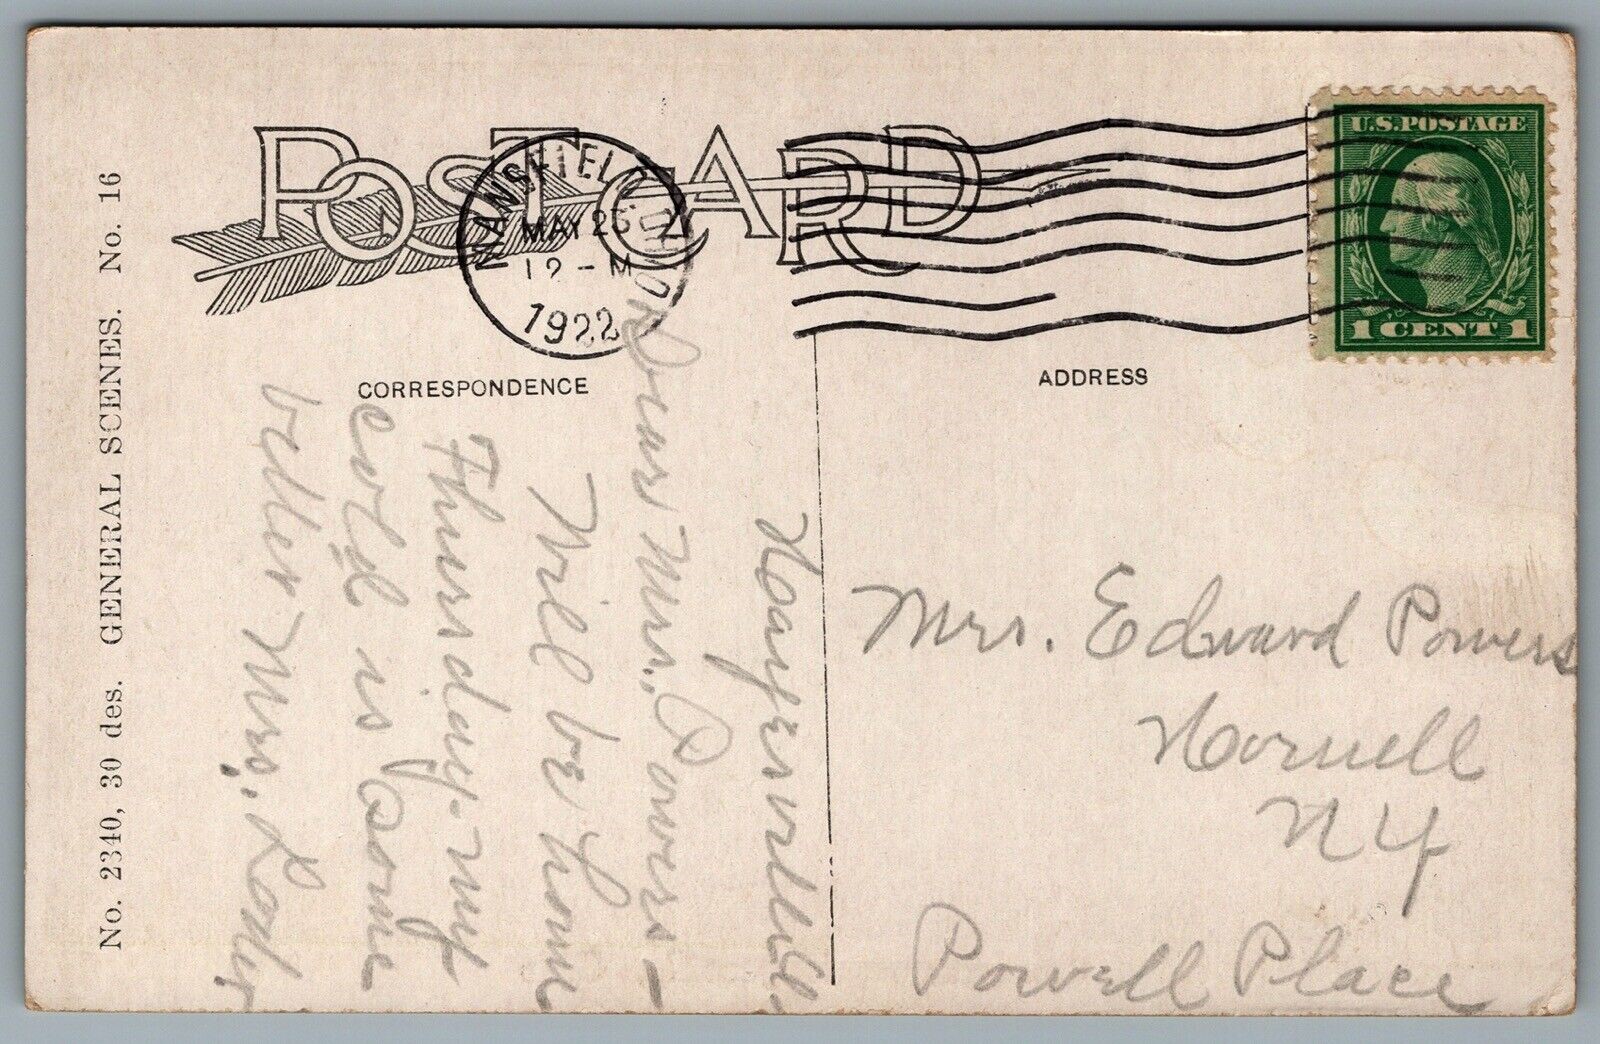 POST CARD
MANSFIELD OHIO
MAY 23
12-M
1922
U.S. POSTAGE
1 CENT 1
CORRESPONDENCE
ADDRESS
No. 2340, 30 des. GENERAL SCENES. No. 16
Hayesville.
Dear Mrs. Powers-
Will be home
Thursday. my
cold is some
better Mrs.
Mrs. Edward Powers
Hornell
N Y
Powell Place